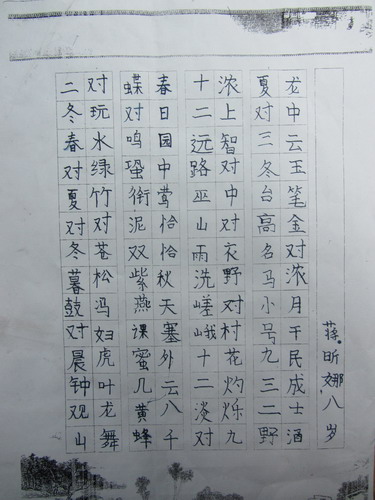 二冬春对夏对冬暮鼓对晨钟观山
对玩水绿竹对苍松冯妇虎叶龙舞
蝶对鸣蛩衔泥双紫燕课蜜几黄蜂
春日园中莺恰恰秋天塞外云八千
十二远路巫山雨洗嵯峨十二淡对
浓上智对中对衣野对村花灼烁九
夏对三冬台高名马小号九三二野
龙中云玉笔金对浓月干民成士酒
蒋昕娜八岁